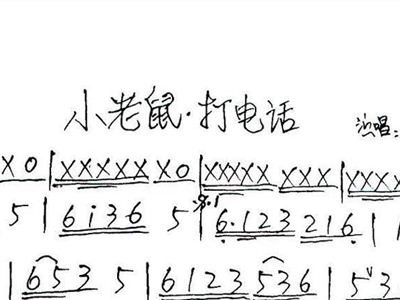 小老鼠·打电话
演唱:
X O | X X X X X X O | X X X X X X X X | X X X X
5 | 6 i 3 6 5 | 6. 1 2 3 2 1 6 |
| 6 5 3 5 | 6 1 2 3 5 3 6 | 5 3